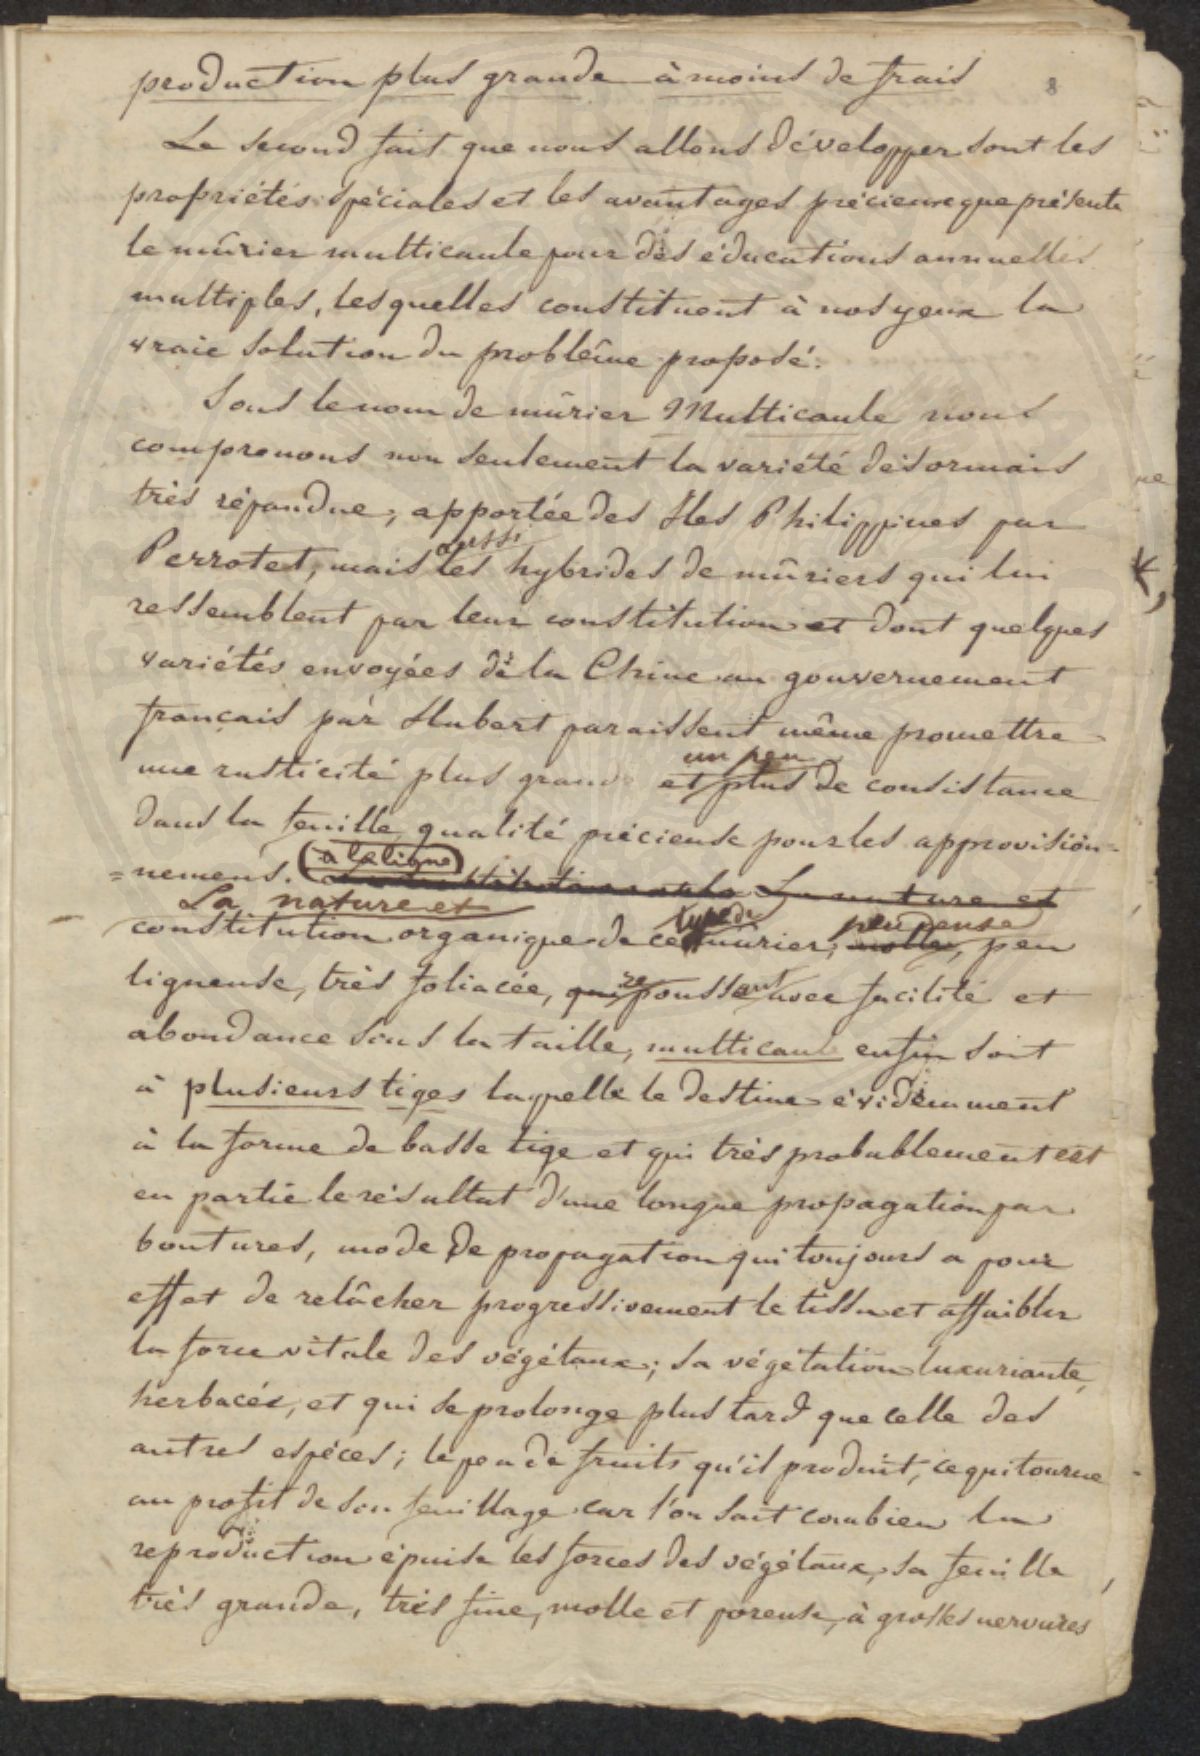 production plus grande à moins de frais
8
Le second fait que nous allons développer sont les
propriétés spéciales et les avantages précieux que présente
le mûrier multicaule pour des éducations annuelles
multiples, lesquelles constituent à nos yeux la
vraie solution du problême proposé.
Sous le nom de mûrier Multicaule nous
comprenons non seulement la variété désormais
très répandue, apportée des Iles Philippines par
aussi
Perrotet, mais les hybrides de mûriers qui lui
ressemblent par leur constitution et dont quelques
variétés envoyées de la Chine au gouvernement
français par Hubert paraissent même promettre
un peu
une rusticité plus grande et plus de consistance
dans la feuille, qualité précieuse pour les approvision=
à la ligne
=nemens. La nature et
La nature et
type de peu dense
constitution organique de ce mûrier, molle, peu
ligneuse, très foliacée, qui repoussant avec facilité et
abondance sous la taille, multicaule enfin soit
à plusieurs tiges laquelle le destine évidemment
à la forme de basse tige et qui très probablement est
en partie le résultat d'une longue propagation par
boutures, mode de propagation qui toujours a pour
effet de relâcher progressivement le tissu et affaiblir
la force vitale des végétaux; sa végétation luxuriante,
herbacée, et qui se prolonge plus tard que celle des
autres espèces; le peu de fruits qu'il produit, ce qui tourne
au profit de son feuillage car l'on sait combien la
reproduction épuise les forces des végétaux, sa feuille
très grande, très fine, molle et poreuse, à grosses nervures